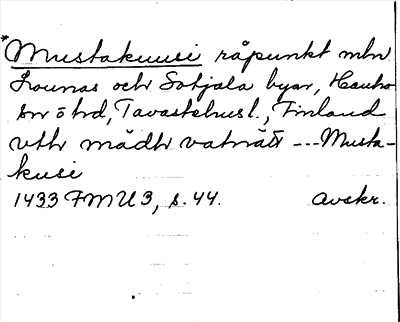 *Mustakuusi råpunkt mln
Lounas och Sotjala byar, Hauho
sn ö hd, Tavastehus l., Finland
vthr mådhr vatnätt --- Musta-
kusi
1433 FMU 3, s. 44. Avskr.